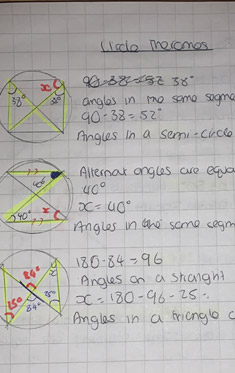 Circle Theromos
90-38=52 38°
x
38°
angles in the same segme
90-38=52°
Angles in a semi-circle
Alternat angles are equa
40°
40°
x=40°
40°
x
Angles in the same segm
180-84=96
84°
Angles on a straight
x=180-96-25=
25°
84°
25°
Angles in a triangle